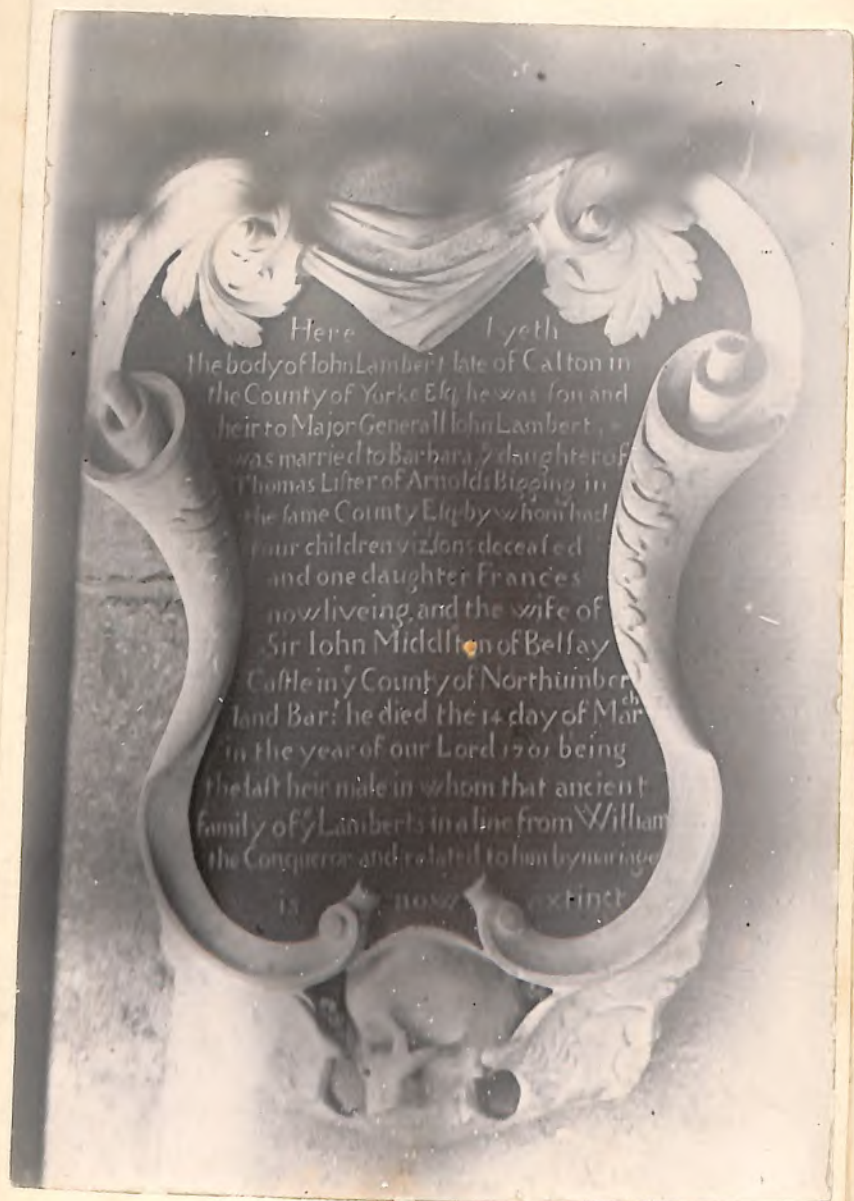 Here lyeth
the body of Iohn Lambert late of Calton in
the County of Yorke Eſq he was ſon and
heir to Major Generall Iohn Lambert,
was married to Barbara yᵉ daughter of
Thomas Liſter of Arnolds Bigging in
the ſame County Eſq by whom had
four children viz ſons deceaſed
and one daughter Frances
now liveing, and the wife of
Sir Iohn Middlton of Belſay
Caſtle in yᵉ County of Northumber
land Barᵗ he died the 14 day of Marᶜʰ
in the year of our Lord 1701 being
the laſt heir male in whom that ancient
family of yᵉ Lamberts in a line from William
the Conqueror and related to him by mariage
is now extinct